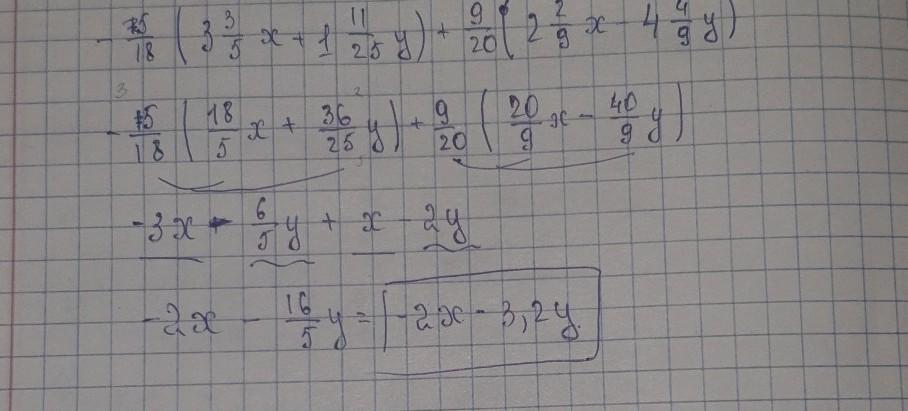 - 15/18 (3 3/5 x + 1 11/25 y) + 9/20 (2 2/9 x - 4 4/9 y)
- 15/18 (18/5 x + 36/25 y) + 9/20 (20/9 x - 40/9 y)
-3x - 6/5 y + x - 2y
-2x - 16/5 y = -2x - 3,2y